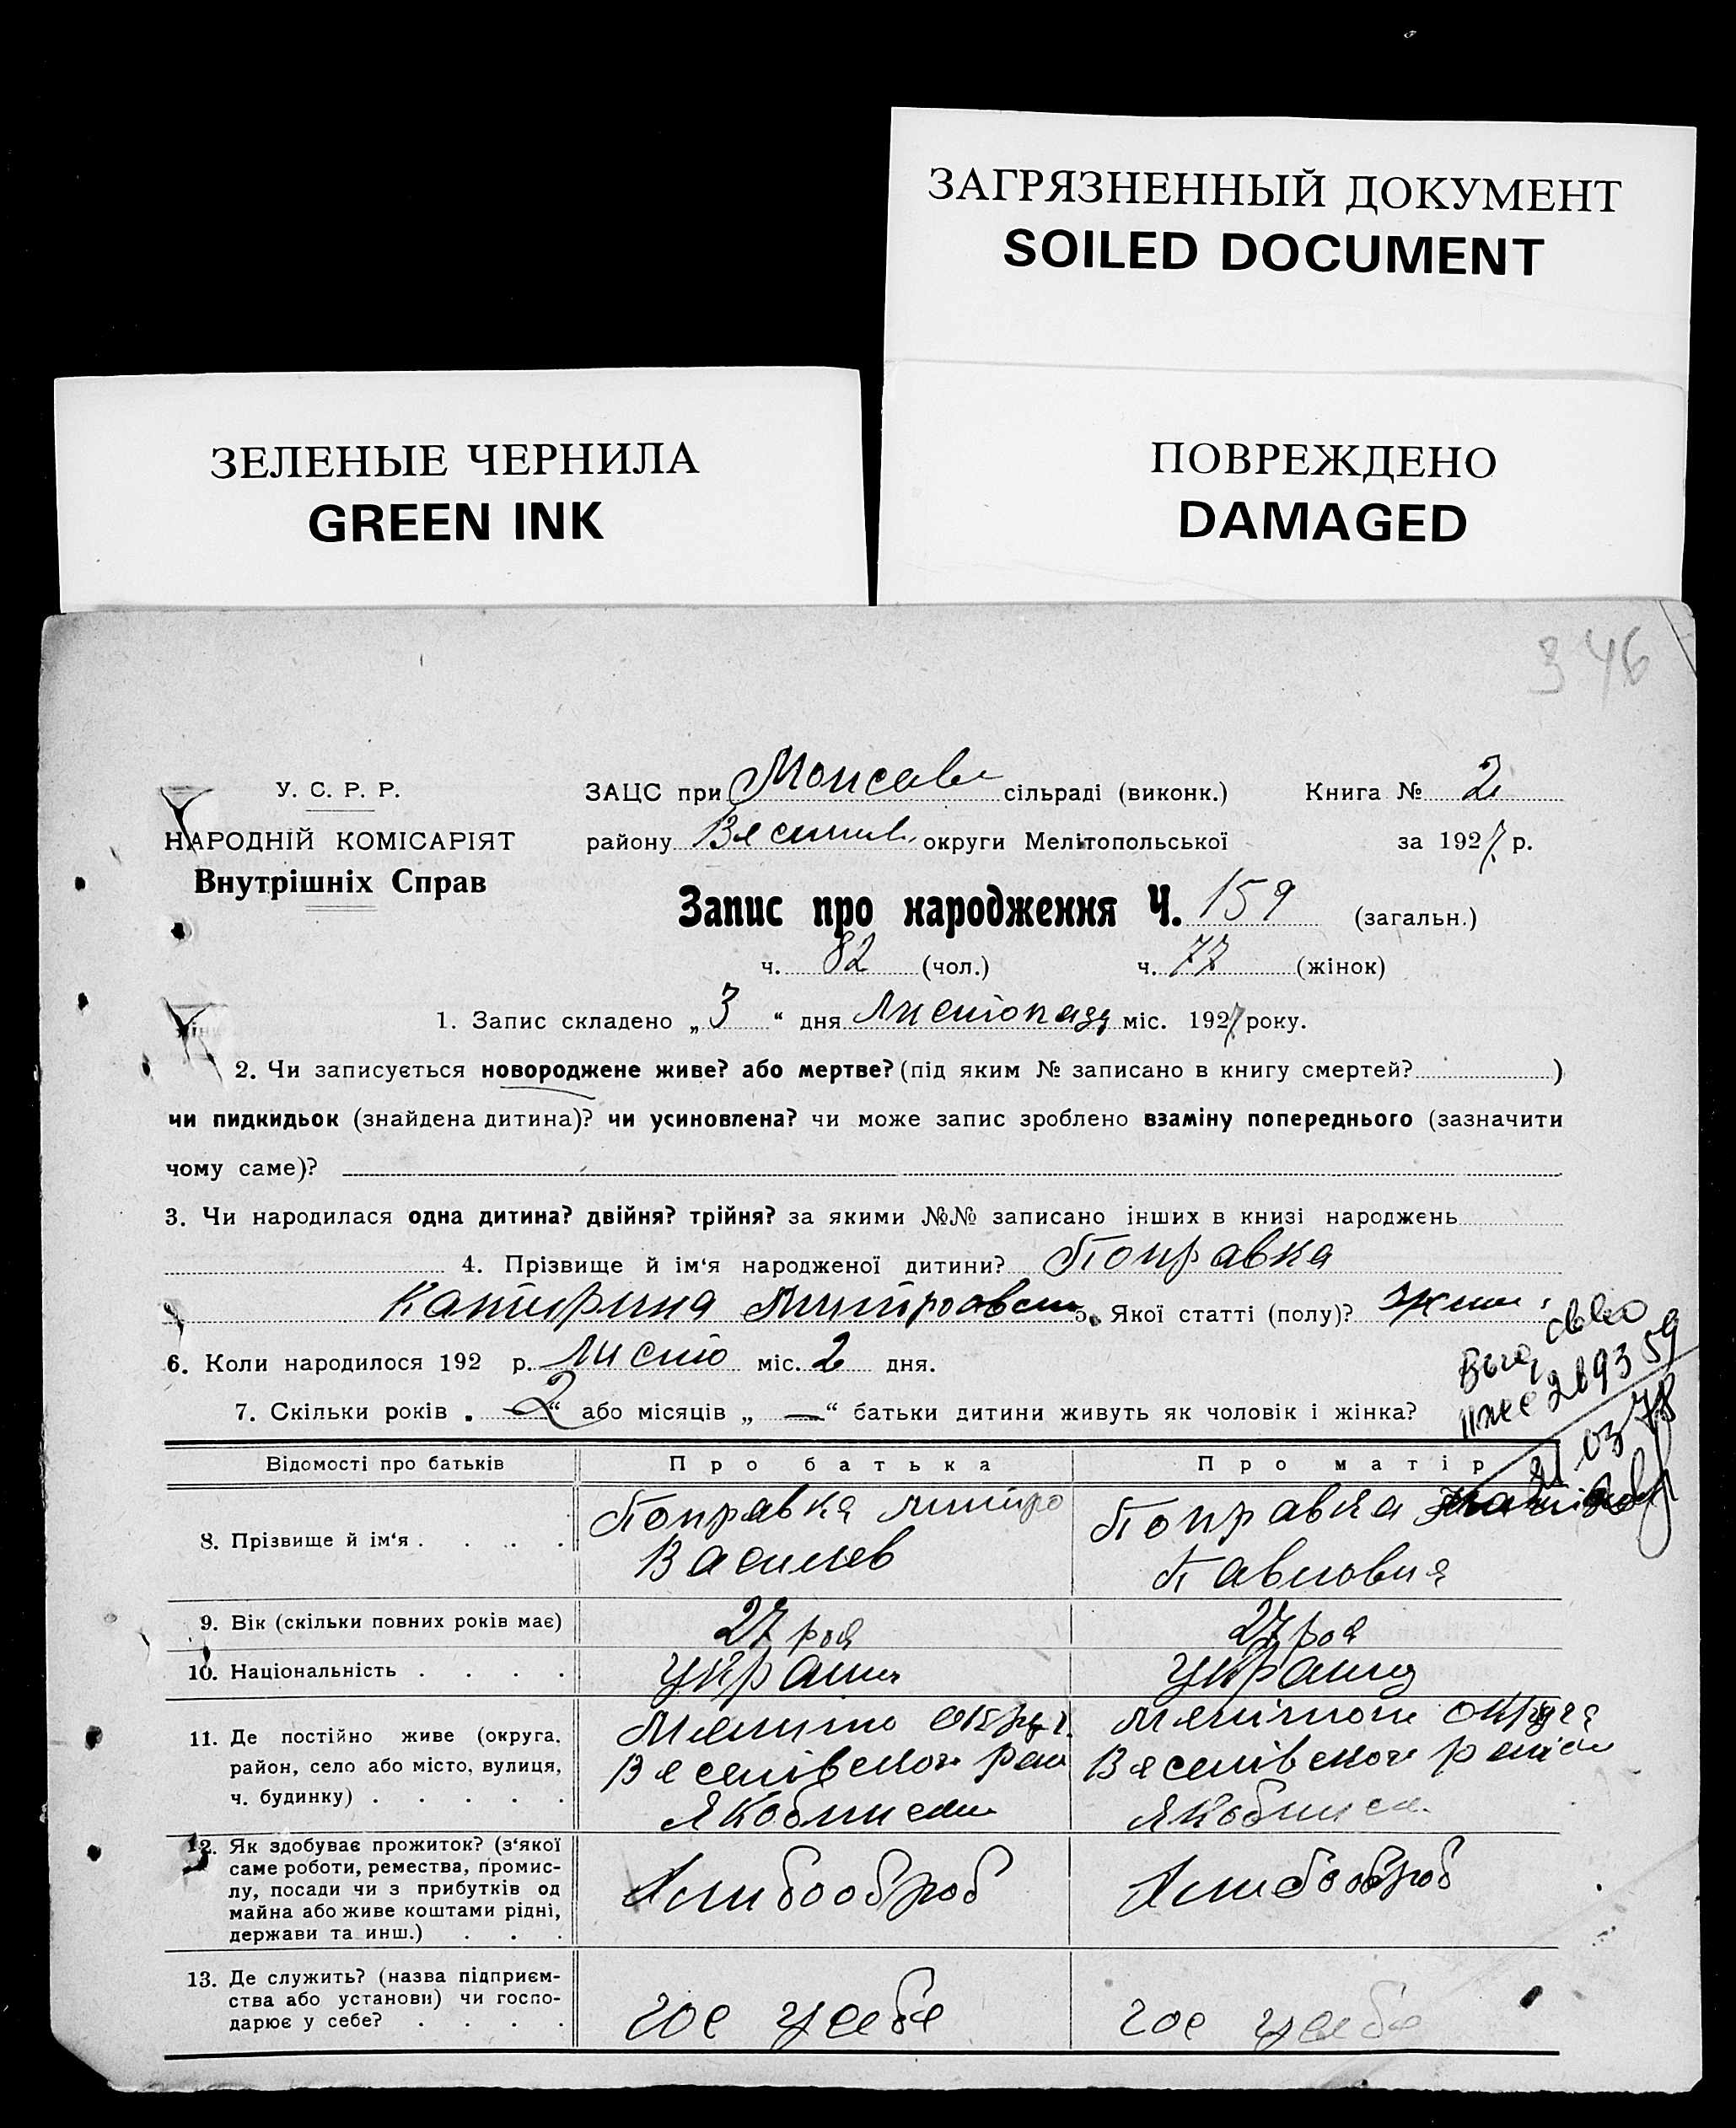 ЗАГРЯЗНЕННЫЙ ДОКУМЕНТ
SOILED DOCUMENT
ЗЕЛЕНЫЕ ЧЕРНИЛА
GREEN INK
ПОВРЕЖДЕНО
DAMAGED
346
У. С. Р. Р.
НАРОДНІЙ КОМІСАРІЯТ
Внутрішніх Справ
ЗАЦС при сільраді (виконк.) Книга № 2
району округи Мелітопольської за 1927 р.
Запис про народження Ч. 159 (загальн.)
ч. 82 (чол.) ч. 77 (жінок)
1. Запис складено „ 3 “ дня Листопада міс. 1927 року.
2. Чи записується новороджене живе? або мертве? (під яким № записано в книгу смертей? )
чи пидкидьок (знайдена дитина)? чи усиновлена? чи може запис зроблено взаміну попереднього (зазначити
чому саме)?
3. Чи народилася одна дитина? двійня? трійня? за якими №№ записано інших в книзі народжень
4. Прізвище й ім‘я народженої дитини? Поправка
Катерина 5. Якої статті (полу)? жін.
6. Коли народилося 192 р. Листо міс. 2 дня.
7. Скільки років „ 2 “ або місяців „ — “ батьки дитини живуть як чоловік і жінка?
21 03 78
Відомості про батьків Про батька Про матір
8. Прізвище й ім‘я . . . . Поправка Митро Поправка
Василев Павловна
9. Вік (скільки повних років має) 27 рок 27 рок
10. Національність . . . .
11. Де постійно живе (округа,
район, село або місто, вулиця, Веселівского Веселівского
ч. будинку) . . . . .
12. Як здобуває прожиток? (з‘якої
саме роботи, ремества, промис-
лу, посади чи з прибутків од Хлибооброб Хлибооброб
майна або живе коштами рідні,
держави та инш.) . . .
13. Де служить? (назва підприєм-
ства або установи) чи госпо-
дарює у себе? . . . . гос у себе гос у себе